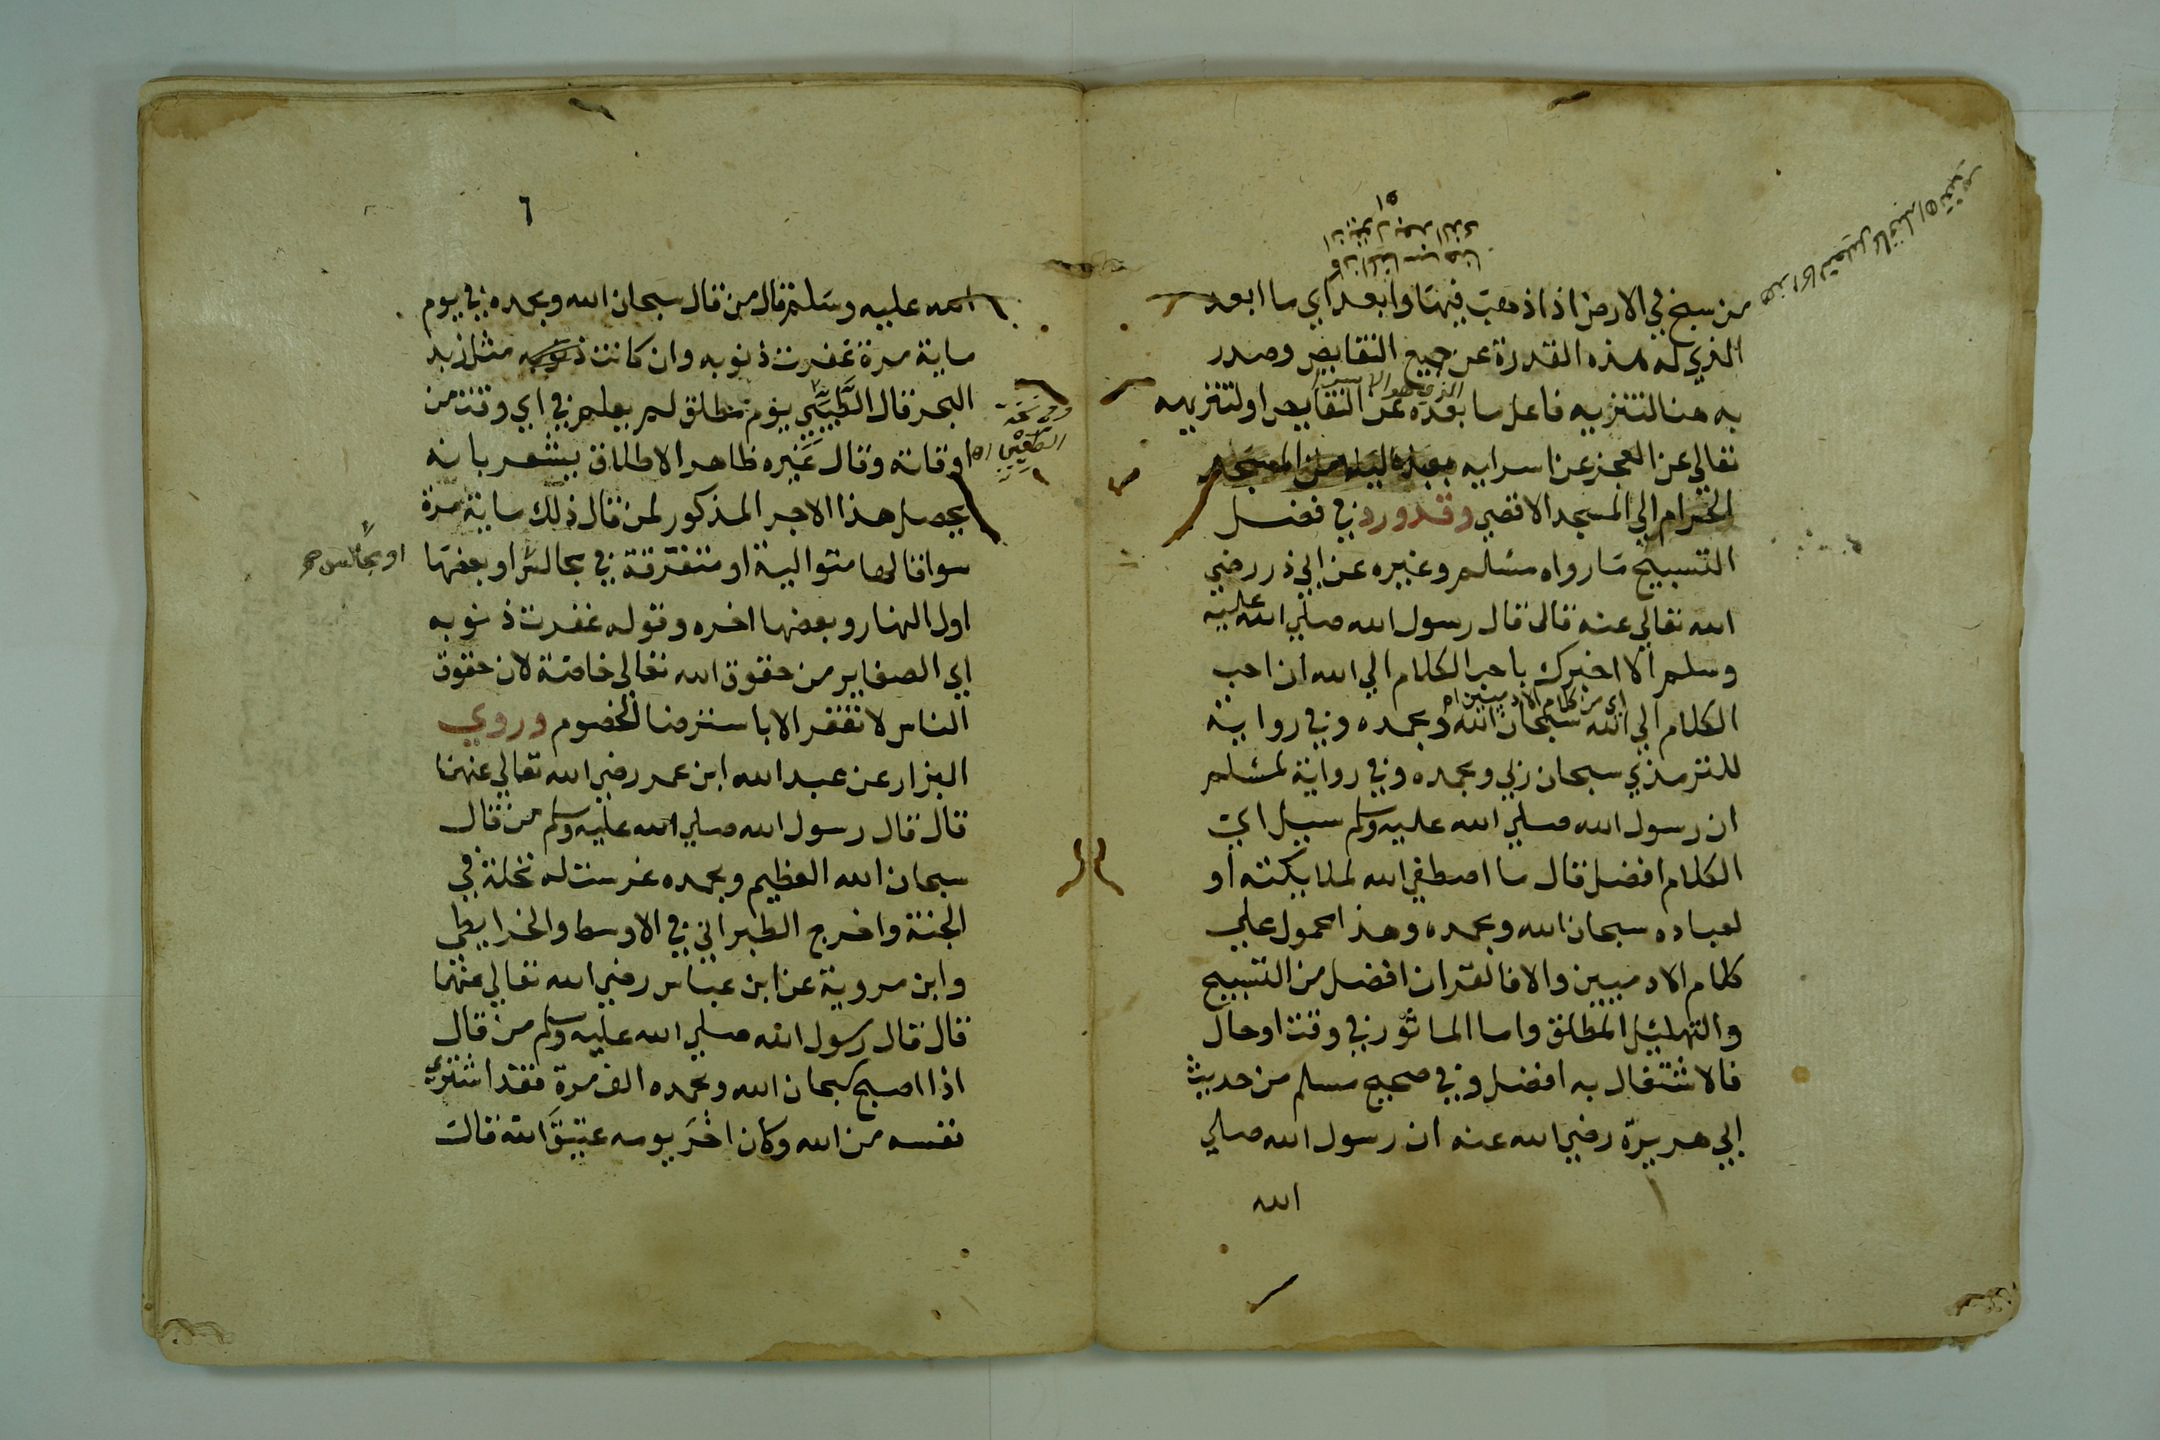 من سبح في الارض اذا ذهب فيها وابعد اي ما ابعد
الذي له هذه القدرة عن جميع النقايص وصدر
به هنا لتنزيه فاعل ما بعده عن النقايص او لتنزيهه
تعالي عن العجز عن اسرايه بعبده ليلا من المسجد
الحرام الي المسجد الاقصي وقد ورد في فضل
التسبيح ما رواه مسلم وغيره عن ابي ذر رضي
الله تعالي عنه قال قال رسول الله صلي الله عليه
وسلم الا اخبرك باحب الكلام الي الله ان احب
اي من كلام الادميين اه
الكلام الي الله سبحان الله وبحمده وفي رواية
للترمذي سبحان ربي وبحمده وفي رواية لمسلم
ان رسول الله صلي الله عليه وسلم سيل اي
الكلام افضل قال ما اصطفي الله لملايكته او
لعباده سبحان الله وبحمده وهذا محمول علي
كلام الادميين والا فالقران افضل من التسبيح
والتهليل المطلق واما الماثور في وقت او حال
فالاشتغال به افضل وفي صحيح مسلم من حديث
ابي هريرة رضي الله عنه ان رسول الله صلي
الله
٦
الله عليه وسلم قال من قال سبحان الله وبحمده في يوم
ماية مرة غفرت ذنوبه وان كانت ذنوبه مثل زبد
البحر قال الطيبي يوم مطلق لم يعلم في اي وقت من
اوقاته وقال غيره ظاهر الاطلاق يشعر بانه
يحصل هذا الاجر المذكور لمن قال ذلك ماية مرة
سوا قالها متوالية او متفرقة في مجالس او بعضها
او مجلس
اول النهار وبعضها اخره وقوله غفرت ذنوبه
اي الصغاير من حقوق الله تعالي خاصة لان حقوق
الناس لا تغفر الا باسترضا الخصوم وروي
البزار عن عبد الله ابن عمر رضي الله تعالي عنهما
قال قال رسول الله صلي الله عليه وسلم من قال
سبحان الله العظيم وبحمده غرست له نخلة في
الجنة واخرج الطبراني في الاوسط والخرايطي
وابن مروية عن ابن عباس رضي الله تعالي عنهما
قال قال رسول الله صلي الله عليه وسلم من قال
اذا اصبح سبحان الله وبحمده الف مرة فقد اشتري
نفسه من الله وكان اخر يومه عتيق الله قالت